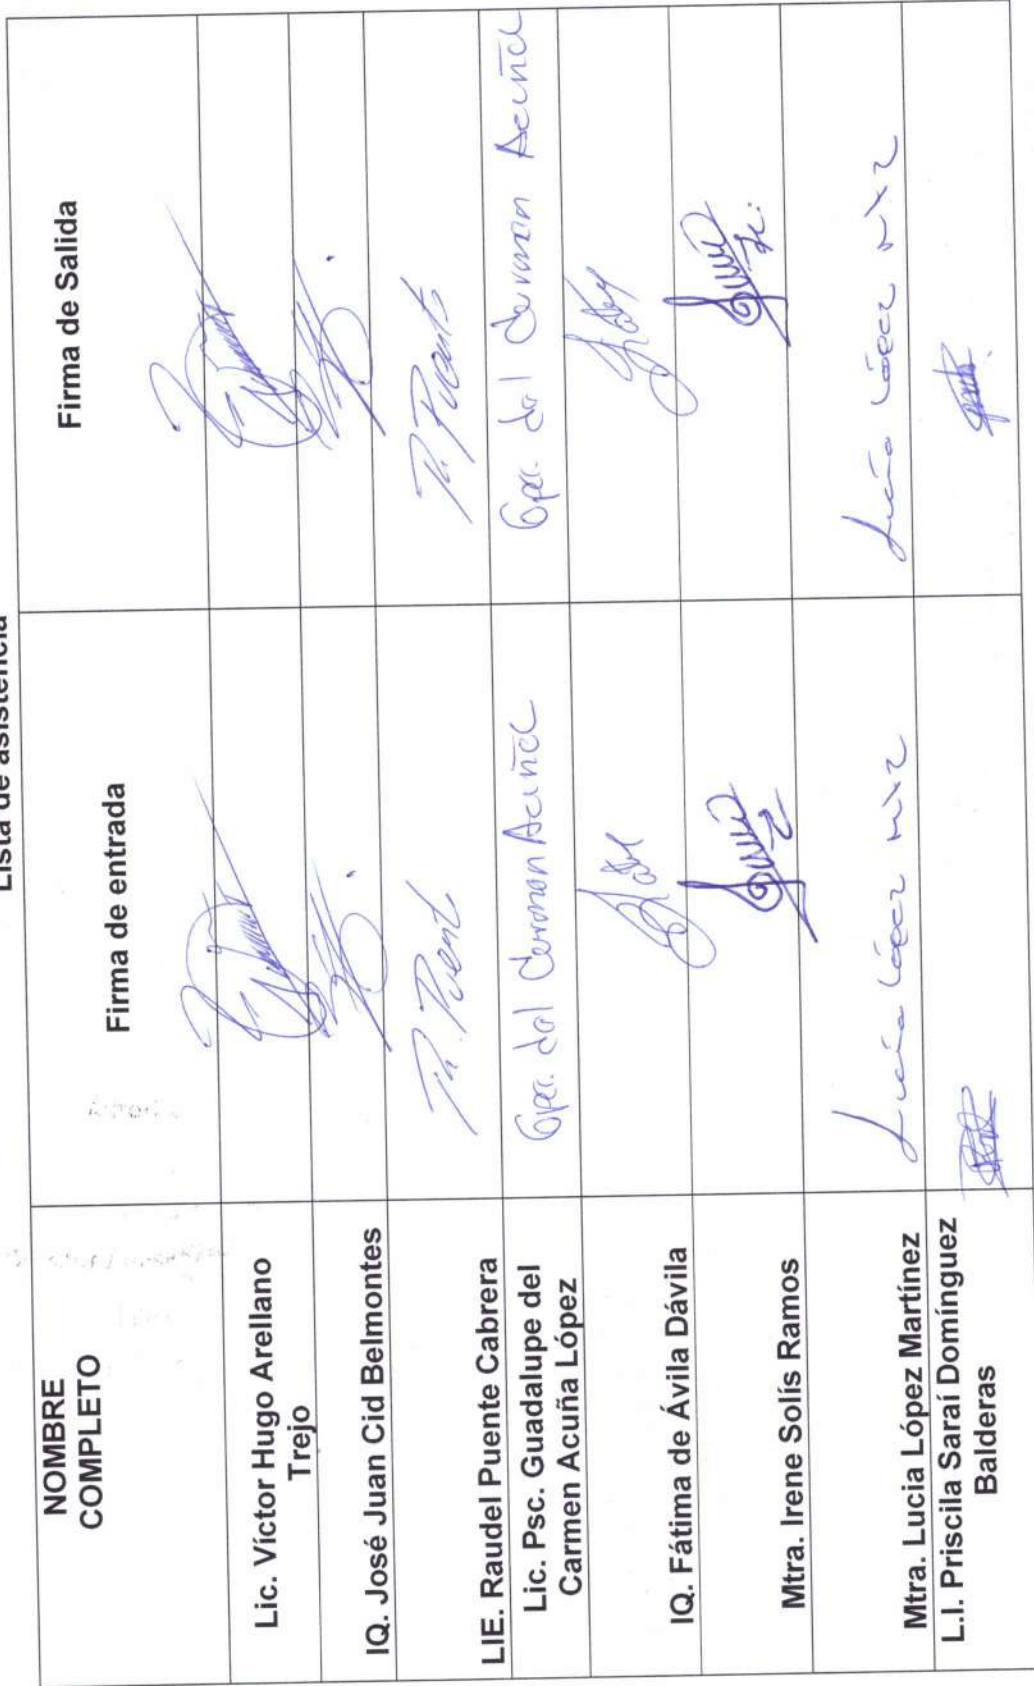 Lista de asistencia
NOMBRE
COMPLETO
Firma de entrada
Firma de Salida
Lic. Víctor Hugo Arellano
Trejo
IQ. José Juan Cid Belmontes
LIE. Raudel Puente Cabrera
Lic. Psc. Guadalupe del
Carmen Acuña López
Gpe. del Carmen Acuña
Gpe. del Carmen Acuña
IQ. Fátima de Ávila Dávila
Mtra. Irene Solís Ramos
Mtra. Lucia López Martínez
Lucía López
Lucía López
L.I. Priscila Saraí Domínguez
Balderas